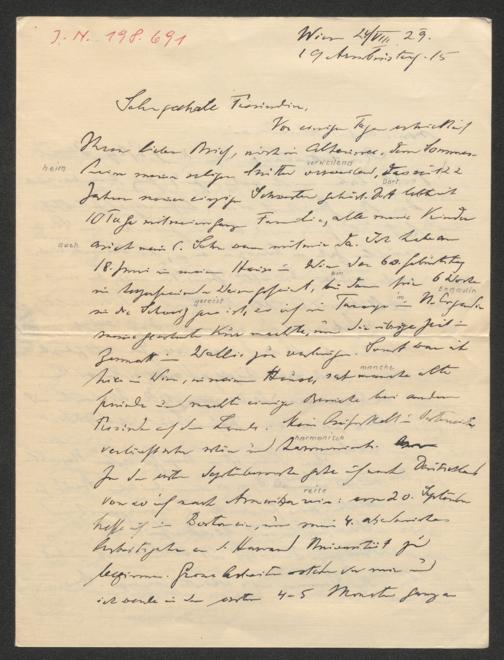 J. N. 198.691
Wien 24/VIII 29.
19 Armbrusterg. 15
Sehr geehrte Freundin,
Vor einigen Tagen erhielt ich
Ihren lieben Brief, in Altaussee, dem Sommer-
heim
heim meiner seligen Mutter verweilend, das seit 22
verweilend
Jahren meiner einzigen Schwester gehört. Dort
Dort
10 Tage mit meiner ganzen Familie, alle meine Kinder
auch
auch mein l. Sohn waren mit mir da. Ich habe am
18. Juni in meinem Hause in Wien den 60. Geburtstag
bin
in gefeiert, bin dann für 6 Wochen
Engadin
in die Schweiz gereist, wo ich in Tarasp im U. Engadin
gereist
im
meine Kur machte, um die übrige Zeit in
Zermatt in Wallis zu verbringen. Sonst war ich
hier in Wien, in meinem Hause, sah manche alte
manche
Freunde und machte einige Besuche bei anderen
Freunden auf dem Lande. Mein Aufenthalt in Österreich
verlief sehr schön und harmonisch.
harmonisch
In der ersten Septemberwoche gehe ich nach Deutschland
von wo ich nach Amerika reise: am 20. September
reise
hoffe ich in Boston zu sein, um mein 4.
Arbeitsjahr an der Harvard Universität zu
beginnen. Grosse Arbeiten stehen vor mir und
ich werde in den ersten 4-5 Monaten ganz an